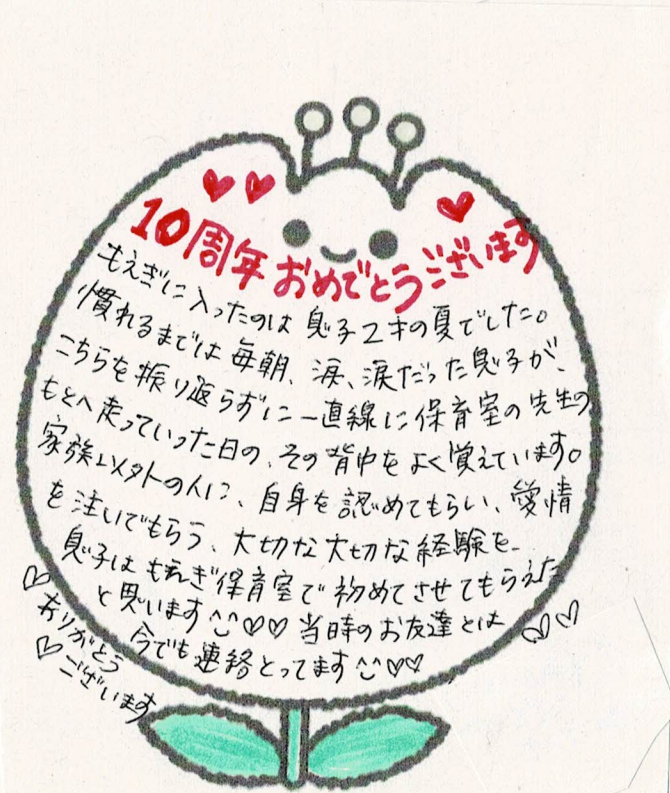 10周年おめでとうございます
もえぎに入ったのは息子2才の夏でした。
慣れるまでは毎朝、涙、涙だった息子が、
こちらを振り返らずに一直線に保育室の先生の
もとへ走っていった日の、その背中をよく覚えています。
家族以外の人に、自身を認めてもらい、愛情
を注いでもらう、大切な大切な経験を、
息子はもえぎ保育室で初めてさせてもらえた
と思います♡♡当時のお友達とは
今でも連絡とってます♡♡
ありがとう
ございます